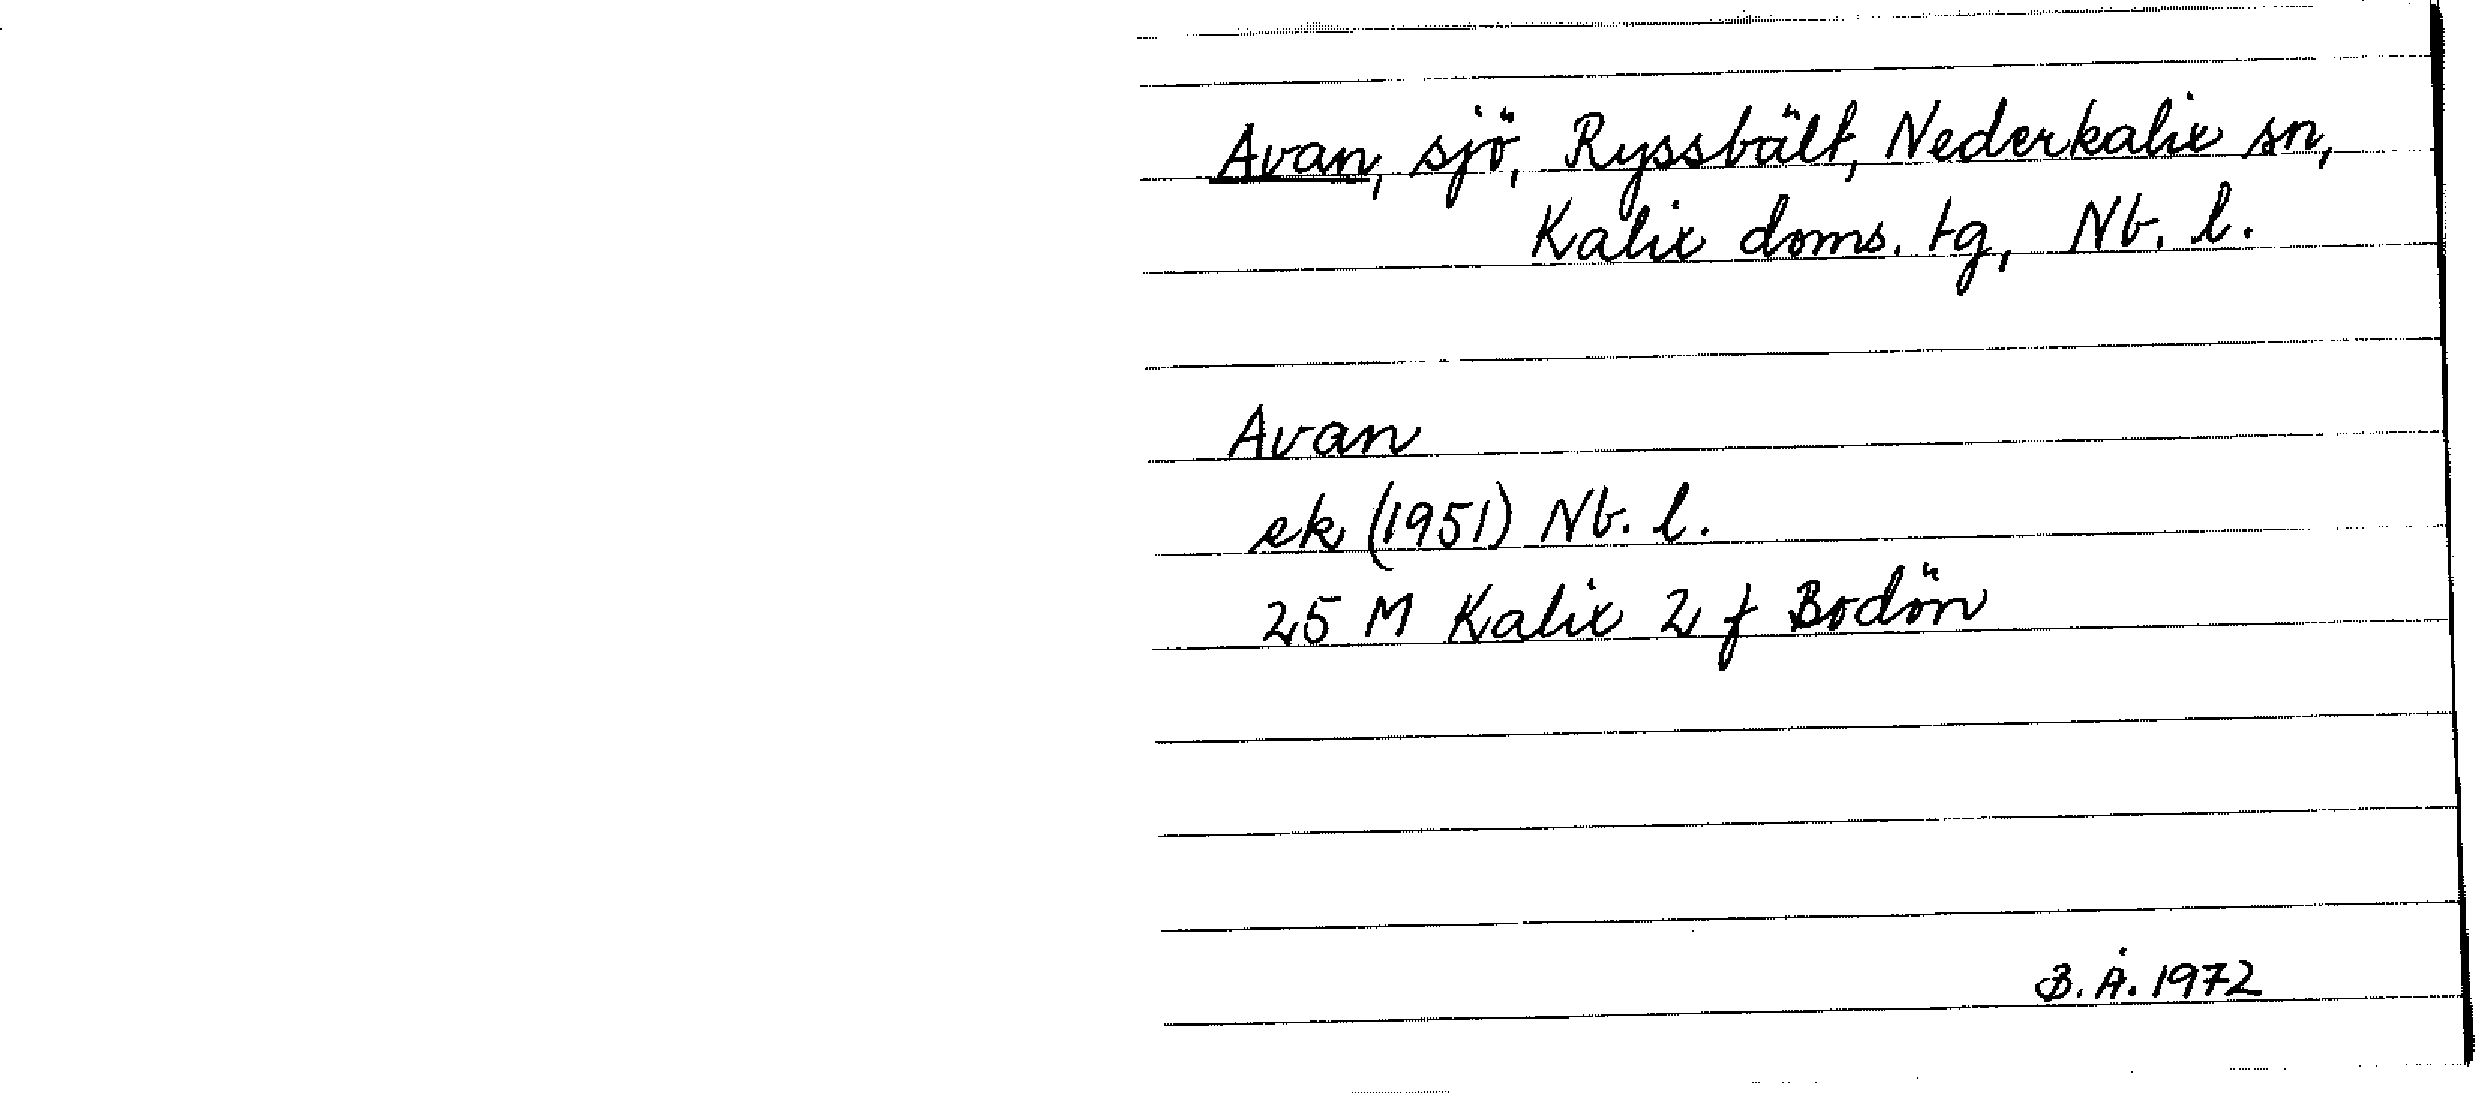 Avan, sjö, Ryssbält, Nederkalix sn,
Kalix doms. tg, Nb. l.
Avan
ek (1951) Nb. l.
25 M Kalix 2 f Bodön
B.Å. 1972